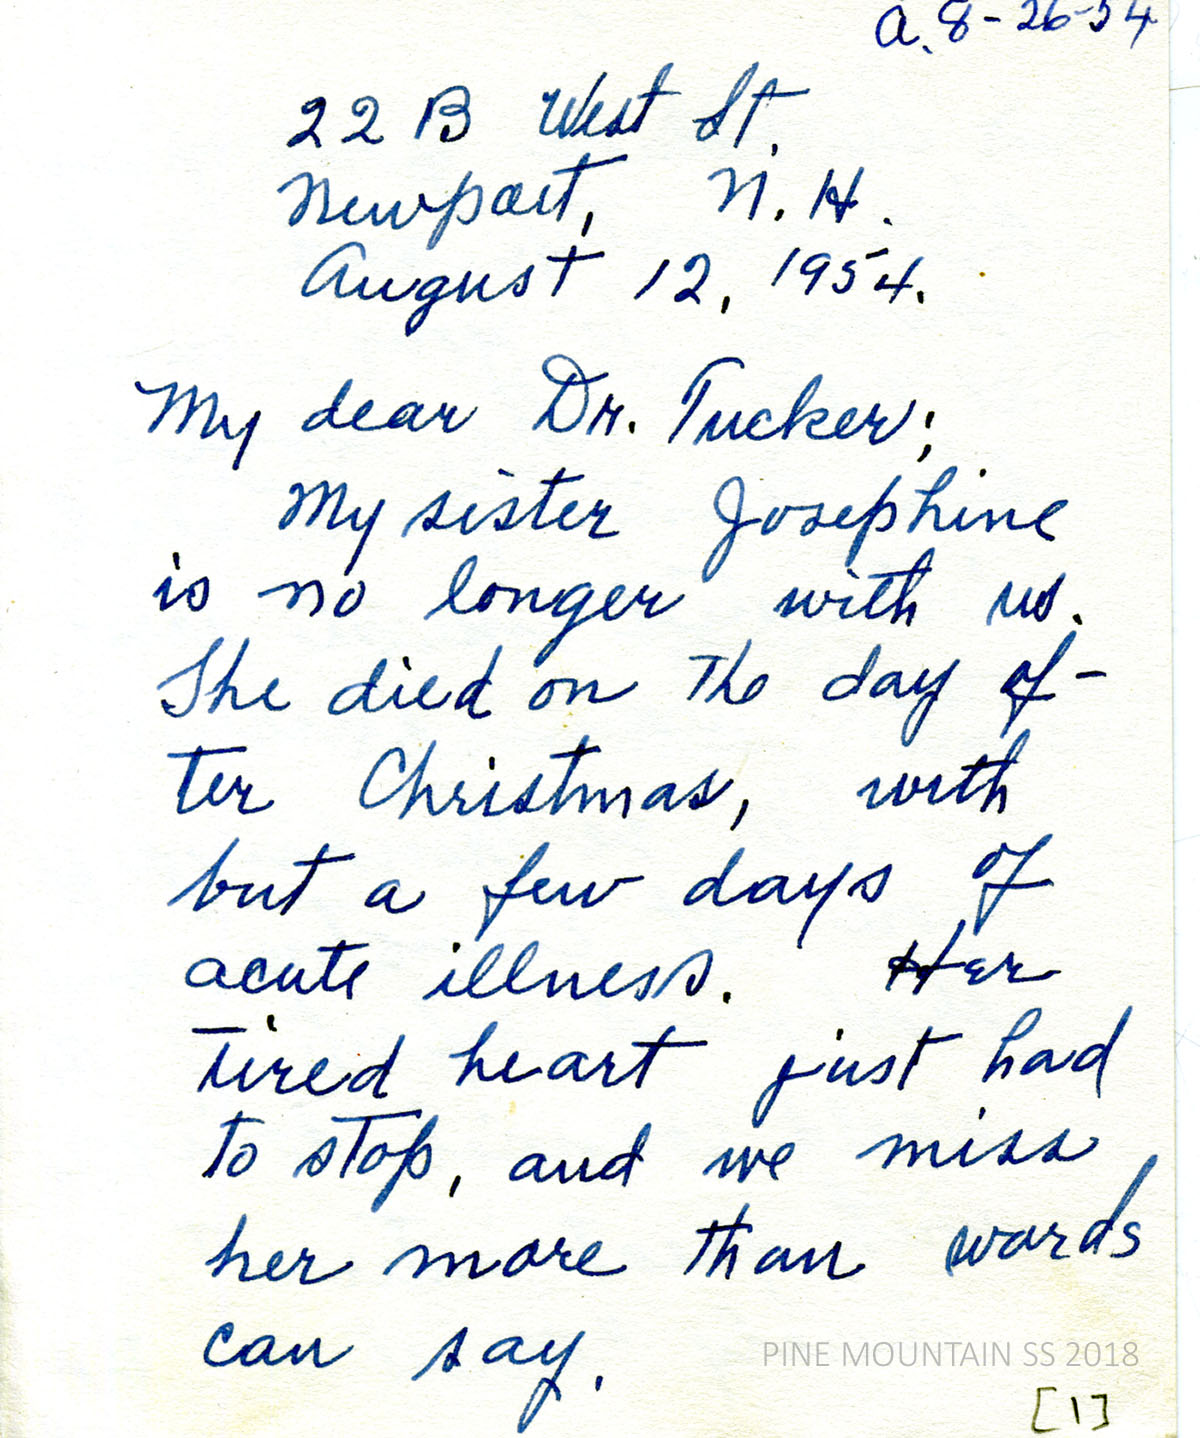 a. 8-26-54
22 B West St.
Newport, N. H.
August 12, 1954.
My dear Dr. Tucker;
My sister Josephine
is no longer with us.
She died on the day af-
ter Christmas, with
but a few days of
acute illness. Her
tired heart just had
to stop, and we miss
her more than words
can say.
PINE MOUNTAIN SS 2018
[1]